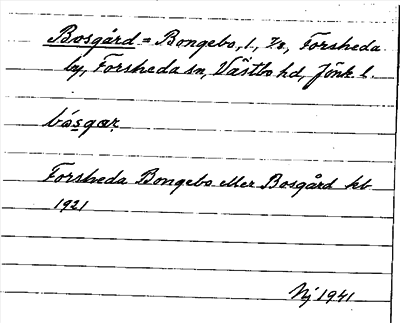 Bosgård = Bongebo, l., 7/8, Forsheda
by, Forsheda sn, Västbo hd, Jönk. l.
bósgær
Forsheda Bongebo eller Bosgård kb
1921
Nj 1941